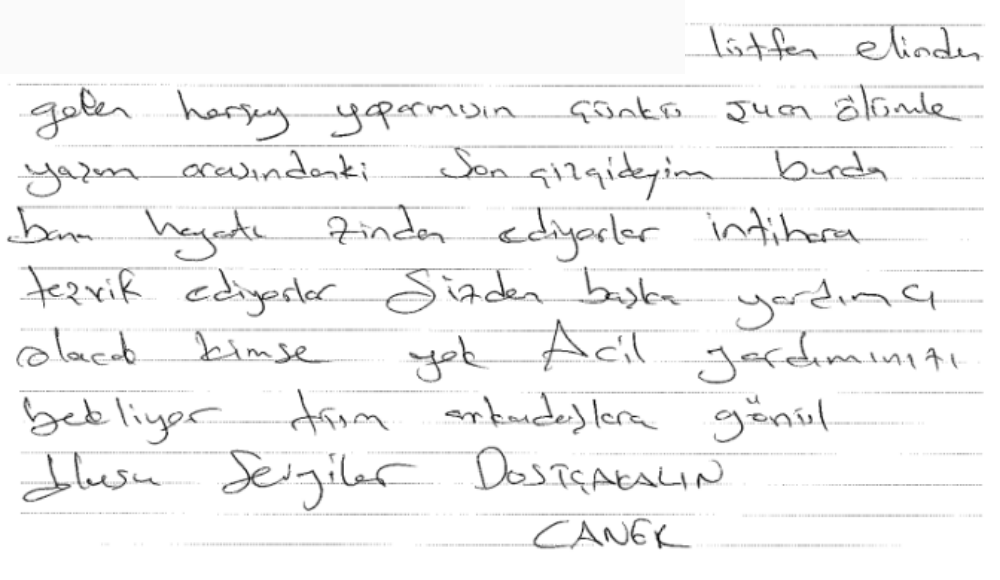 lütfen elinden
gelen herşey yaparmısın çünkü şuan ölümle
yaşam arasındanki son çizgideyim burda
bana hayatı zinden ediyorlar intihara
teşvik ediyorlar Sizden başka yardımcı
olacak kimse yok Acil yardımınızı
bekliyor tüm arkadaşlara gönül
dlusu Sevgiler DOSTÇAKALIN
CANEK